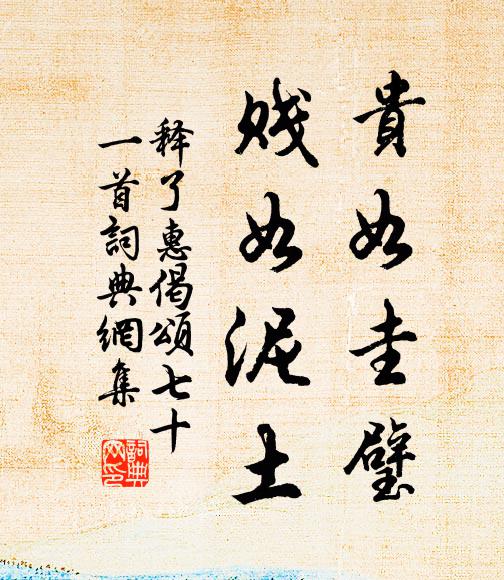 貴如圭璧
賤如泥土
释了惠偈頌七十
一首詞典網集
詞典網印